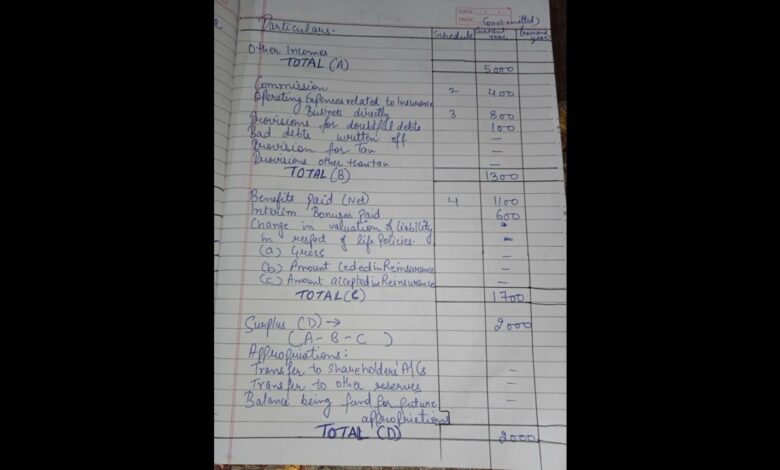 DATE
PAGE
(000's omitted)
Particulars.
Schedule
Current year
Previous year
Other Incomes
TOTAL (A) 5000
Commission 2 400
Operating Expenses related to Insurance
Business directly 3 800
Provisions for doubtful debts 100
Bad debts written off —
Provision for Tax —
Provisions other than tax —
TOTAL (B) 1300
Benefits paid (Net) 4 1100
Interim Bonuses Paid 600
Change in valuation of liability
in respect of life Policies.
(a) Gross —
(b) Amount Ceded in Reinsurance —
(c) Amount accepted in Reinsurance —
TOTAL (C) 1700
Surplus (D) → 2000
(A-B-C)
Appropriations:
Transfer to Shareholders' A/Cs —
Transfer to other reserves —
Balance being fund for future —
appropriations
TOTAL (D) 2000